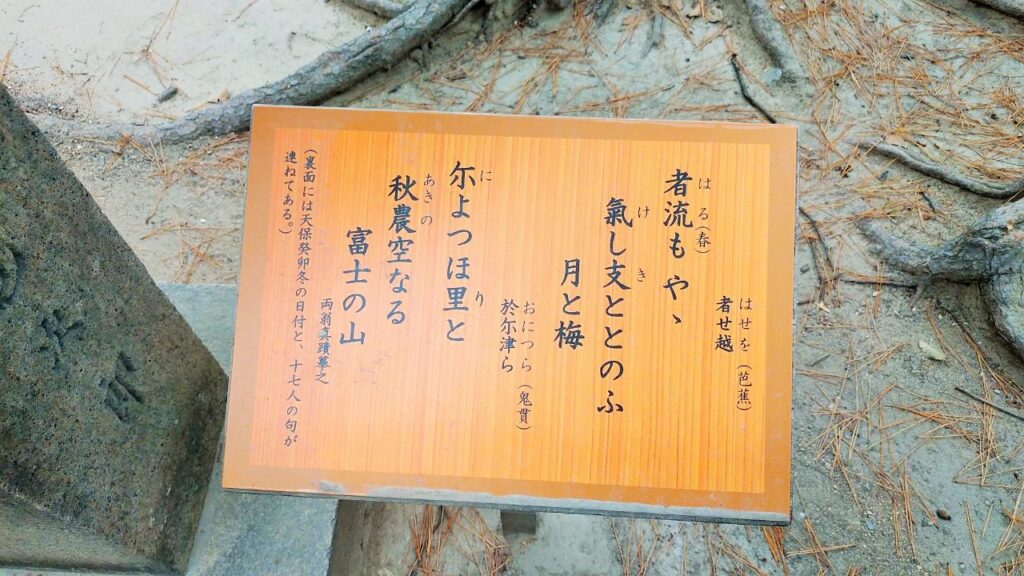 はせを（芭蕉）
者せ越
はる（春）
者流もやゝ
けき
氣し支ととのふ
月と梅
おにつら（鬼貫）
於尓津ら
に り
尓よつほ里と
あきの
秋農空なる
富士の山
両翁真蹟摹之
（裏面には天保癸卯冬の日付と、十七人の句が
連ねてある。）